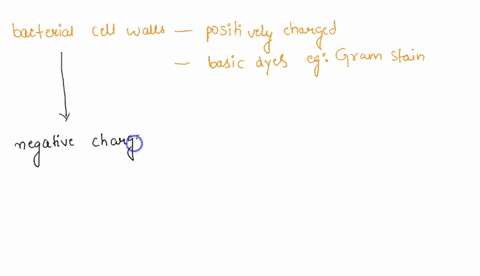 bacterial cell walls — positively charged
— basic dyes eg: Gram stain
negative charg